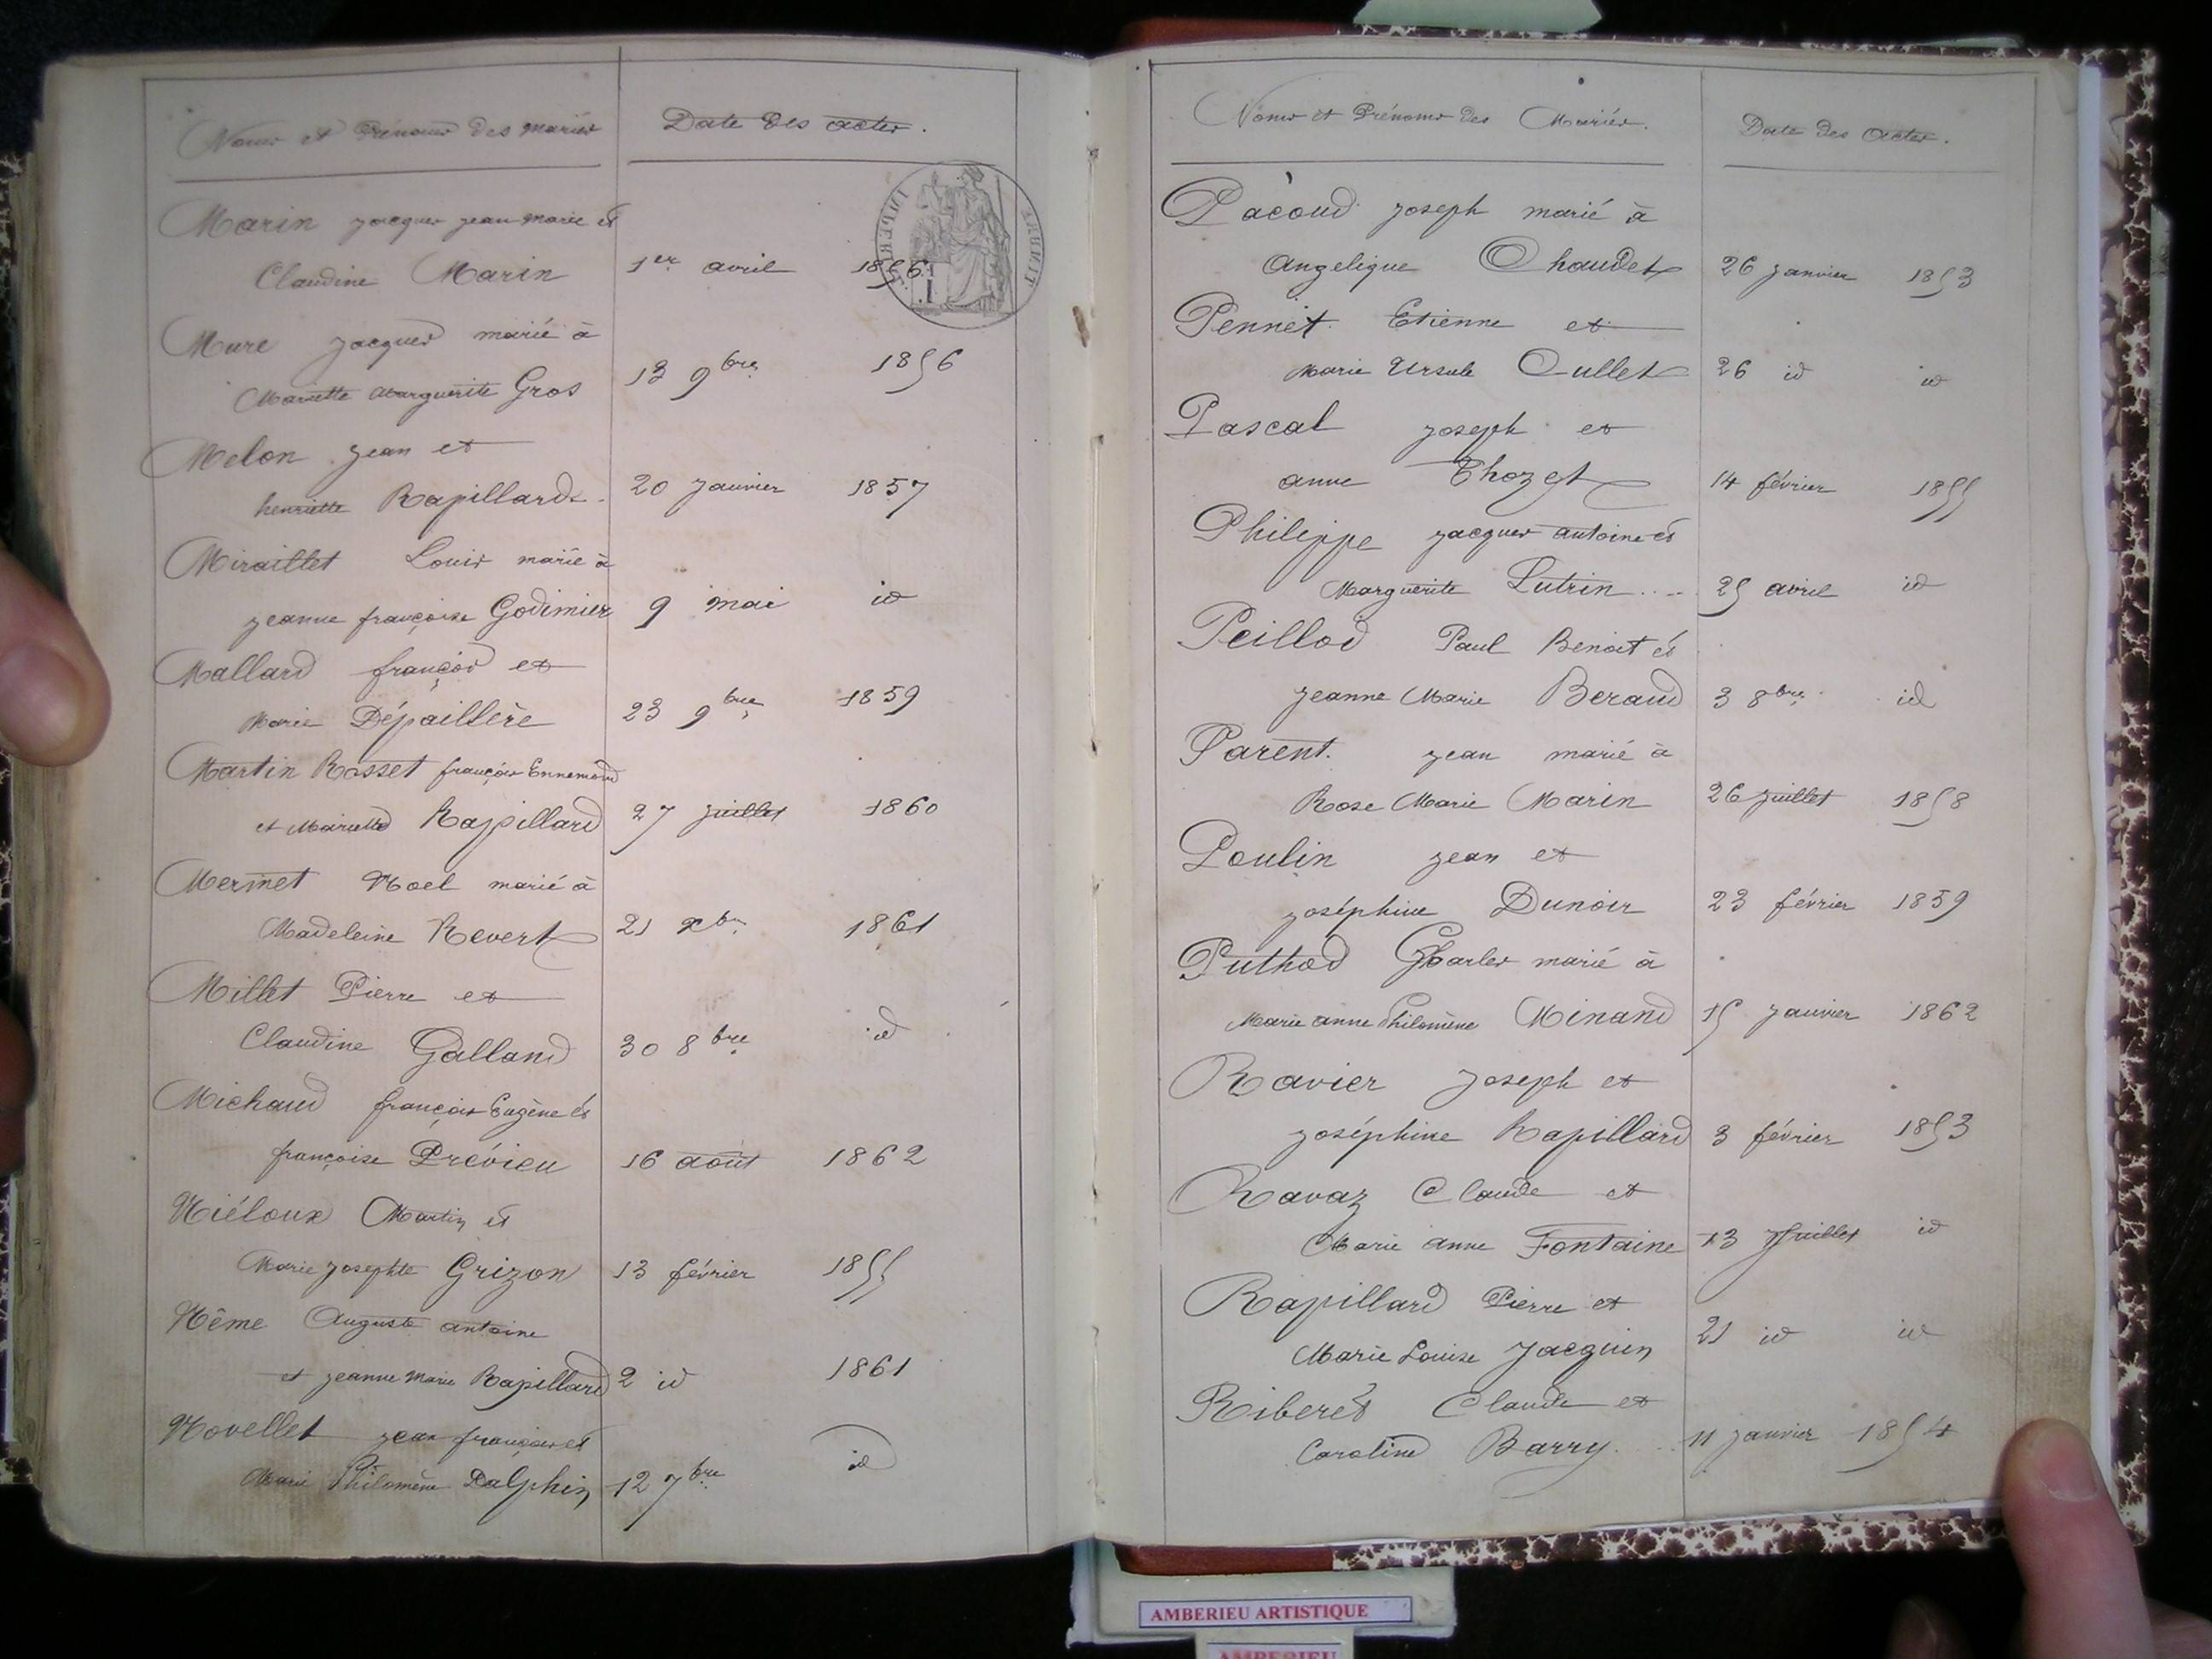 Noms et Prénoms des mariés
Date des actes.
Marin jacques jean marie et
Claudine Marin 1er avril 1856
Mure jacques marié à
Mariette Marguerite Gros 13 9bre 1856
Melon jean et
henriette Rapillard 20 janvier 1857
Miraillet Louis marié à
jeanne françoise Godimier 9 mai id
Mallard françois et
Marie Dépaillère 23 9bre 1859
Martin Rosset françois Ennemond
et Mariette Rapillard 27 juillet 1860
Mermet Noel marié à
Madeleine Revert 21 xbre 1861
Millet Pierre et
Claudine Galland 30 8bre id
Michaud françois Eugène et
françoise Prévieu 16 août 1862
Niéloux Martin et
Marie josephte Grizon 13 février 1855
Nême Auguste antoine
et jeanne Marie Rapillard 2 id 1861
Novellet jean françois et
Marie Philomène Dalphin 12 7bre id
Noms et Prénoms des Mariés.
Date des actes.
Pacoud joseph marié à
Angelique Chaudet 26 janvier 1853
Pennet Etienne et
Marie Ursule Cullet 26 id id
Pascal joseph et
anne Thozet 14 février 1855
Philippe jacques antoine et
Marguerite Lutrin .... 25 avril id
Peillod Paul Benoit et
jeanne Marie Beraud 3 8bre id
Parent. jean marié à
Rose Marie Marin 26 juillet 1858
Poulin jean et
joséphine Dunoir 23 février 1859
Puthod Charles marié à
Marie anne Philomène Minand 15 janvier 1862
Ravier joseph et
joséphine Rapillard 3 février 1853
Ravaz Claude et
Marie anne Fontaine 13 juillet id
Rapillard Pierre et
Marie Louise jacquin 21 id id
Riberet Claude et
Caroline Barry. 11 janvier 1854
AMBERIEU ARTISTIQUE
AMBERIEU